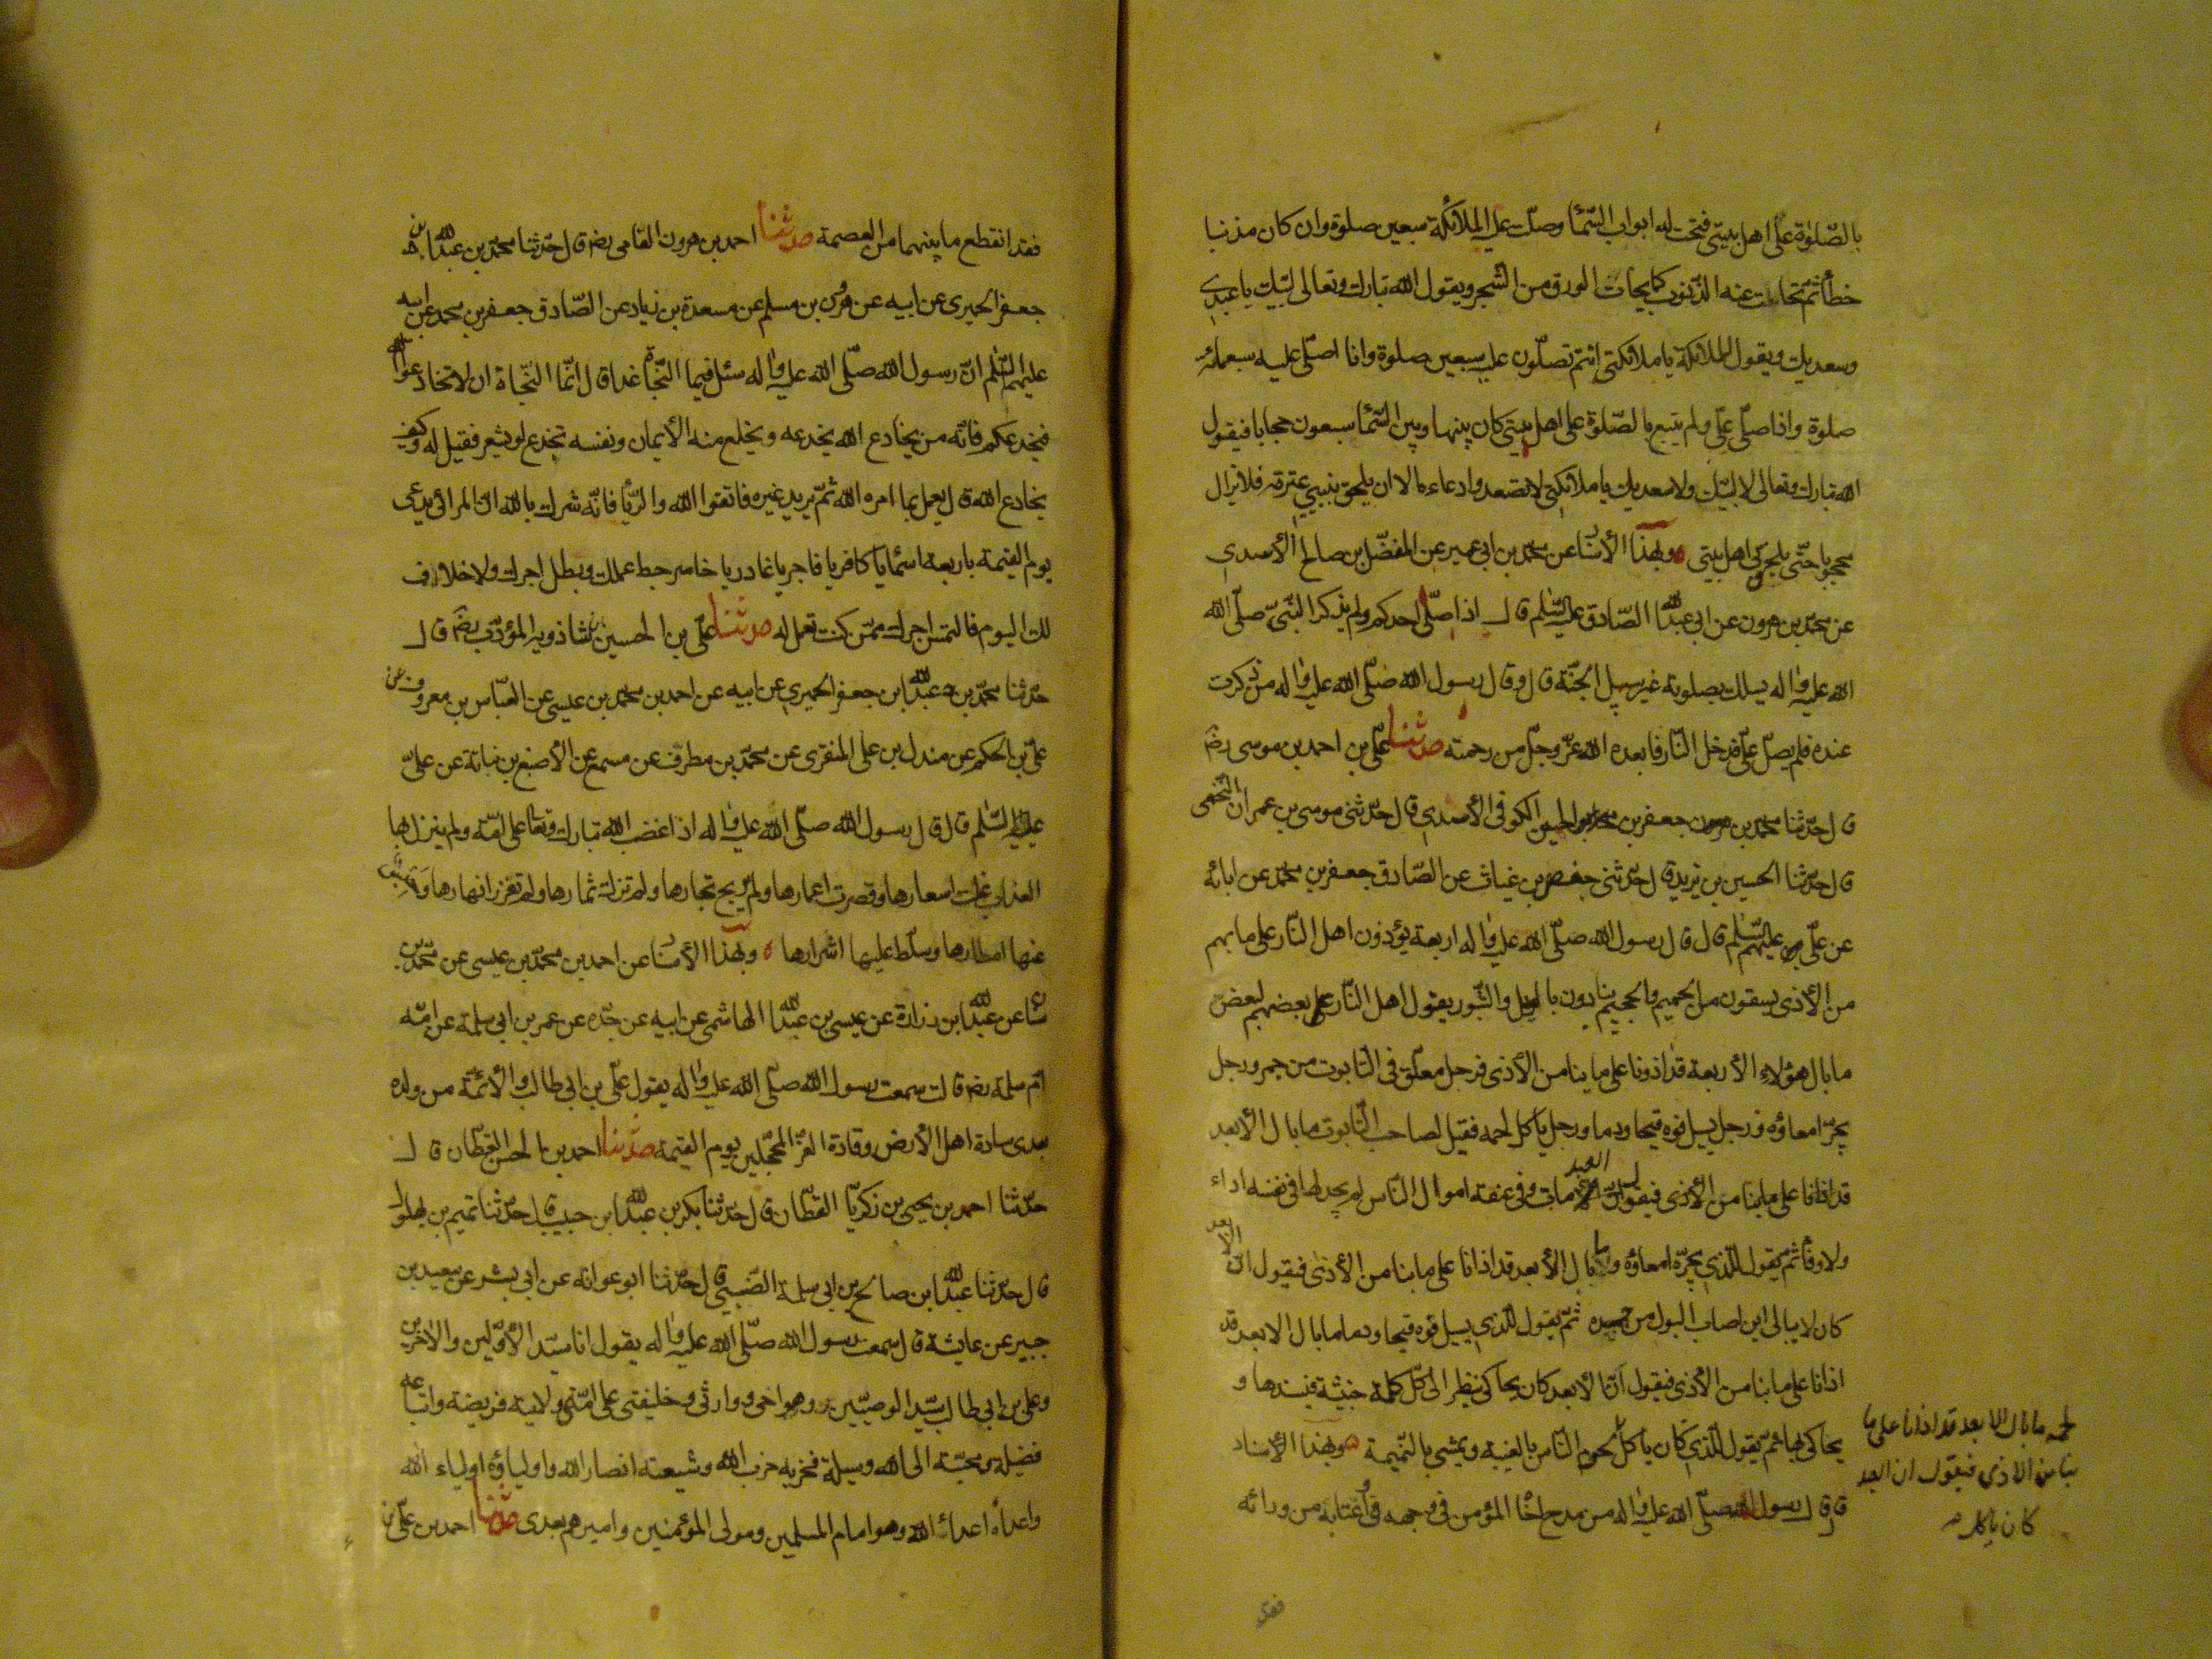 بالصّلوٰة علىٰ اهل بيتى فتحت له ابواب السّمآ وصلّت عليه الملائكة سبعين صلوة وان كان مذنبا
خطأ ثم تحاتت عنه الذّنوب كما يحات الورق من الشجر ويقول الله تبارك وتعالى لبّيك يا عبدى
وسعديك ويقول لملائكة يا ملائكتى انتم تصلّون عليه سبعين صلوة وانا اصلّى عليه سبعمائة
صلوة واذا صلّى علىّ ولم يتبع بالصّلوة على اهل بيتى كان بينها وبين السّمآ سبعون حجابا فيقول
الله تبارك وتعالى لا لبّيك ولا سعديك يا ملائكتى لا تصعدوا دعاءه الا ان يلحق بنبيى عترته فلا يزال
محجوبا حتّى يلحق بى اهل بيتى ه وبهذا الأسنا عن محمّد بن ابى عمير عن المفضّل بن صالح الأسدى
عن محمّد بن هرون عن ابى عبد الله الصّادق عليه السّلم قال اذا صلّى احدكم ولم يذكر النّبىّ صلّى الله
الله عليه واٰله يسلك بصلوته غير سبيل الجنّة قال وقال رسول الله صلّى الله عليه واٰله من ذكرت
عنده فلم يصلّ علىّ فدخل النّار فابعده الله عزّ وجلّ من رحمته حدثنا علىّ بن احمد بن موسى رضه
قال حدّثنا محمد بن جعفر ابو الحسين الكوفى الأسدى قال حدّثنى موسى بن عمران النّخعى
قال حدّثنا الحسين بن يزيد قال حدّثنى حفص بن غياث عن الصّادق جعفر بن محمّد عن ابائه
عن علىّ عليهم السّلم قال قال رسول الله صلّى الله عليه واٰله اربعة يؤذون اهل النّار على ما بهم
من الأذى يسقون من الحميم والجحيم ينادون بالويل والثّبور يقول اهل النّار بعضهم لبعض
ما بال هؤلاء الأربعة قد اذونا على ما بنا من الأذى فرجل معلّق فى التّابوت من جمر ورجل
يجرّ امعاؤه ورجل يسيل فوه قيحا ودما ورجل يأكل لحمه فقيل لصاحب التّابوت ما بال الأبعد
قد اذانا على ما بنا من الأذى فيقول ان الأبعد مات وفى عنقه اموال النّاس لم يجد لها فى نفسه اداء
ولا وفأ ثم يقول للّذى يجرّه امعاؤه ما بال الأبعد قد اذانا على ما بنا من الأذى فيقول انّ الأبعد
كان لا يبالى اين اصاب البول من جسده ثمّ يقول للّذى يسيل فوه قيحا ودما ما بال الابعد قد
اذانا على ما بنا من الأذى فيقول انّ الأبعد كان يحاكى ينظر الى كل كلمة خبيثة فيسندها و
يحاكى بها ثمّ يقول للّذى كان يأكل لحوم النّاس بالغيبة ويمشى بالنّميمة ه وبهذا الأسناد
لحمه ما بال الابعد قد اذانا على ما
بنا من الاذى فيقول ان الابعد
كان يأكل
قال قال رسول الله صلّى الله عليه واٰله من مدح اخا المؤمن فى وجهه واغتابه من ورائه
فقد
فقد انقطع ما بينهما من العصمة حدثنا احمد بن هرون الفامى رضه قال حدّثنا محمّد بن عبد الله بن
جعفر الحميرى عن ابيه عن هرون بن مسلم عن مسعدة بن زياد عن الصّادق جعفر بن محمد عن ابيه
عليهم السّلم انّ رسول الله صلّى الله عليه واٰله سئل فيما النّجاة غدا قال انّما النّجاة ان لا تخادعوا الله
فيخدعكم فانّه من يخادع الله يخدعه ويخلع منه الأيمان ونفسه تخدع لو يشعر فقيل له وكيف
يخادع الله قال يعمل بما امره الله ثمّ يريد غيره فاتقوا الله والرّيا فانّه شرك بالله انّ المرائى يدعى
يوم القيٰمة باربعة اسمآ يا كافر يا فاجر يا غادر يا خاسر حبط عملك وبطل اجرك ولا خلاق
لك اليوم فالتمس اجرك ممّن كنت تعمل له حدثنا علىّ بن الحسين بن شاذويه المؤدّب رضه قال
حدّثنا محمّد بن عبد الله ابن جعفر الحميرى عن ابيه عن احمد بن محمد بن عيسى عن العبّاس بن معروف عن
علىّ بن الحكم عن مندل بن على المنقرى عن محمّد بن مطرف عن مسمع عن الأصبغ بن نباتة عن علىّ
عليه السّلم قال قال رسول الله صلّى الله عليه واٰله اذا غضب الله تبارك وتعا على امّة ولم ينزل بها
العذاب غلت اسعارها وقصرت اعمارها ولم يربح تجارها ولم تزك ثمارها ولم تغزر انهارها وحبس
عنها امطارها وسلّط عليها اشرارها ه وبهذا الأسنا عن احمد بن محمّد بن عيسى عن محمّد بن
سنا عن عبد الله ابن زرارة عن عيسى بن عبد الله الهاشمى عن ابيه عن جدّه عن عمر بن ابى سلمة عن امّه
امّ سلمة رضه قالت سمعت رسول الله صلّى الله عليه واٰله يقول علىّ بن ابى طالب والأئمّة من ولده
بعدى سادة اهل الأرض وقادة الغرّ المحجّلين يوم القيٰمة حدثنا احمد بن الحسن القطّان قال
حدّثنا احمد بن يحيى بن زكريّا القطّان قال حدّثنا بكر بن عبد الله ابن حبيب قال حدّثنا تميم بن بهلول
قال حدّثنا عبد الله ابن صالح بن ابى سلمة الضّبيى قال حدّثنا ابو عوانه عن ابى بشر عن سعيد بن
جبير عن عايشة قال سمعت رسول الله صلّى الله عليه واٰله يقول انا سيّد الأوّلين والاٰخرين
وعلى بن ابى طالب سيّد الوصيّين وهو اخى ووارثى وخليفتى على امّتى ولايته فريضة واتباعه
فضيلة ومحبّته الى الله وسيلة فحزبه حزب الله وشيعته انصار الله واولياؤه اولياء الله
واعداؤه اعداء الله وهو امام المسلمين ومولى المؤمنين واميرهم بعدى حدثنا احمد بن علىّ بن